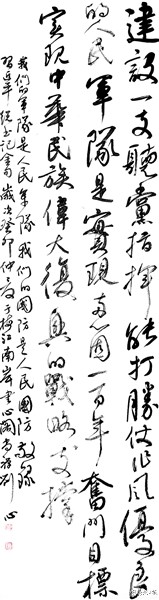 建設一支聽黨指揮能打勝仗作風優良
的人民軍隊是實現兩個一百年奮鬥目標
實現中華民族偉大復興的戰略支撐
我們的軍隊是人民軍隊我們的國防是人民國防敬錄
習近平總書記金句歲次癸卯仲夏於江南岸書心閣